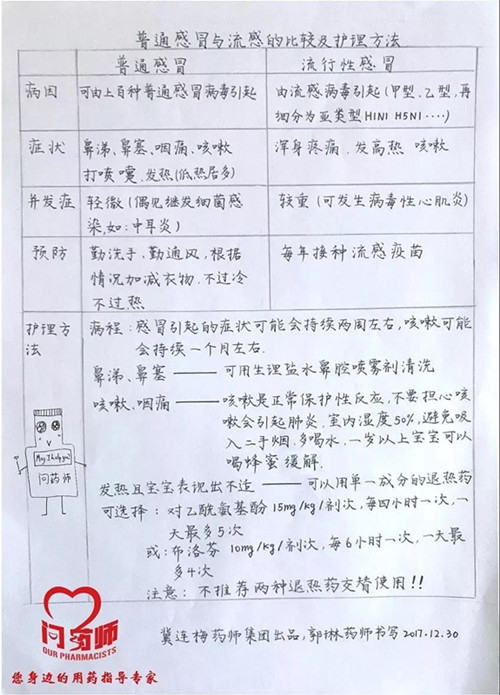 普通感冒与流感的比较及护理方法
普通感冒 流行性感冒
病因 可由上百种普通感冒病毒引起 由流感病毒引起(甲型,乙型,再
细分为亚类型H1N1 H5N1····)
症状 鼻涕、鼻塞、咽痛、咳嗽 浑身疼痛.发高热 咳嗽
打喷嚏.发热(低热居多)
并发症 轻微(偶见继发细菌感 较重(可发生病毒性心肌炎)
染,如:中耳炎)
预防 勤洗手、勤通风,根据 每年接种流感疫苗
情况加减衣物.不过冷
不过热
护理方法 病程:感冒引起的症状可能会持续两周左右,咳嗽可能
会持续一个月左右.
鼻涕、鼻塞——可用生理盐水鼻腔喷雾剂清洗
咳嗽、咽痛——咳嗽是正常保护性反应,不要担心咳
嗽会引起肺炎.室内湿度50%,避免吸
入二手烟.多喝水.一岁以上宝宝可以
喝蜂蜜缓解.
发热且宝宝表现出不适——可以用单一成分的退热药
可选择:对乙酰氨基酚15mg/kg/剂次,每四小时一次,一
天最多5次
或:布洛芬 10mg/kg/剂次,每6小时一次,一天最
多4次
注意:不推荐两种退热药交替使用!!
May I help you
问药师
冀连梅药师集团出品,郭琳药师书写2017.12.30
问药师
OUR PHARMACISTS
您身边的用药指导专家